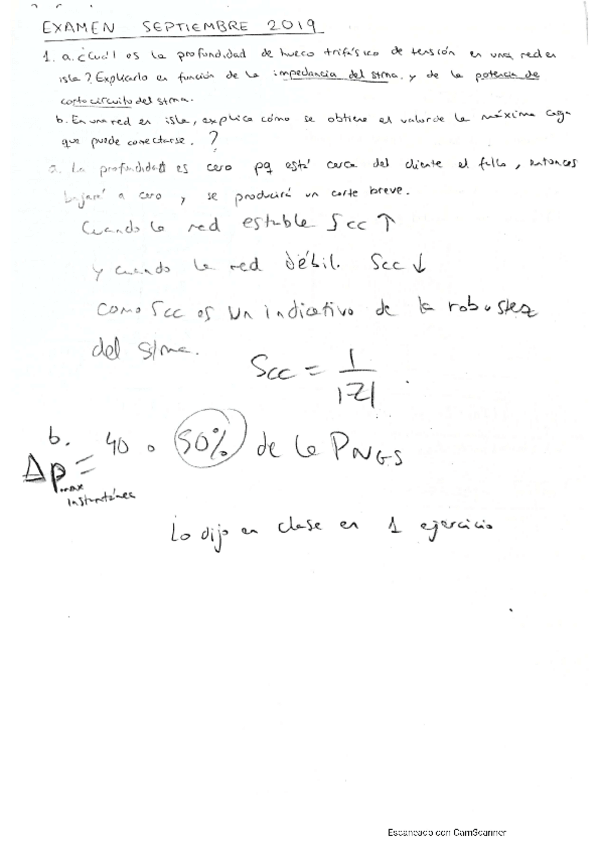 EXAMEN SEPTIEMBRE 2019
1. a. ¿Cuál es la profundidad de hueco trifásico de tensión en una red en
isla? Explicarlo en función de la impedancia del stma. y de la potencia de
cortocircuito del stma.
b. En una red en isla, explica cómo se obtiene el valor de la máxima carga
que puede conectarse. ?
a. La profundidad es cero pq está cerca del cliente el fallo, entonces
bajará a cero, y se producirá un corte breve.
Cuando la red estable Scc ↑
y cuando la red débil. Scc ↓
Como Scc es un indicativo de la robustez
del stma.
Scc = 1 / |Z| .
b.
Δp max instantánea = 40 o 50% de la PNGS
Lo dijo en clase en 1 ejercicio
Escaneado con CamScanner